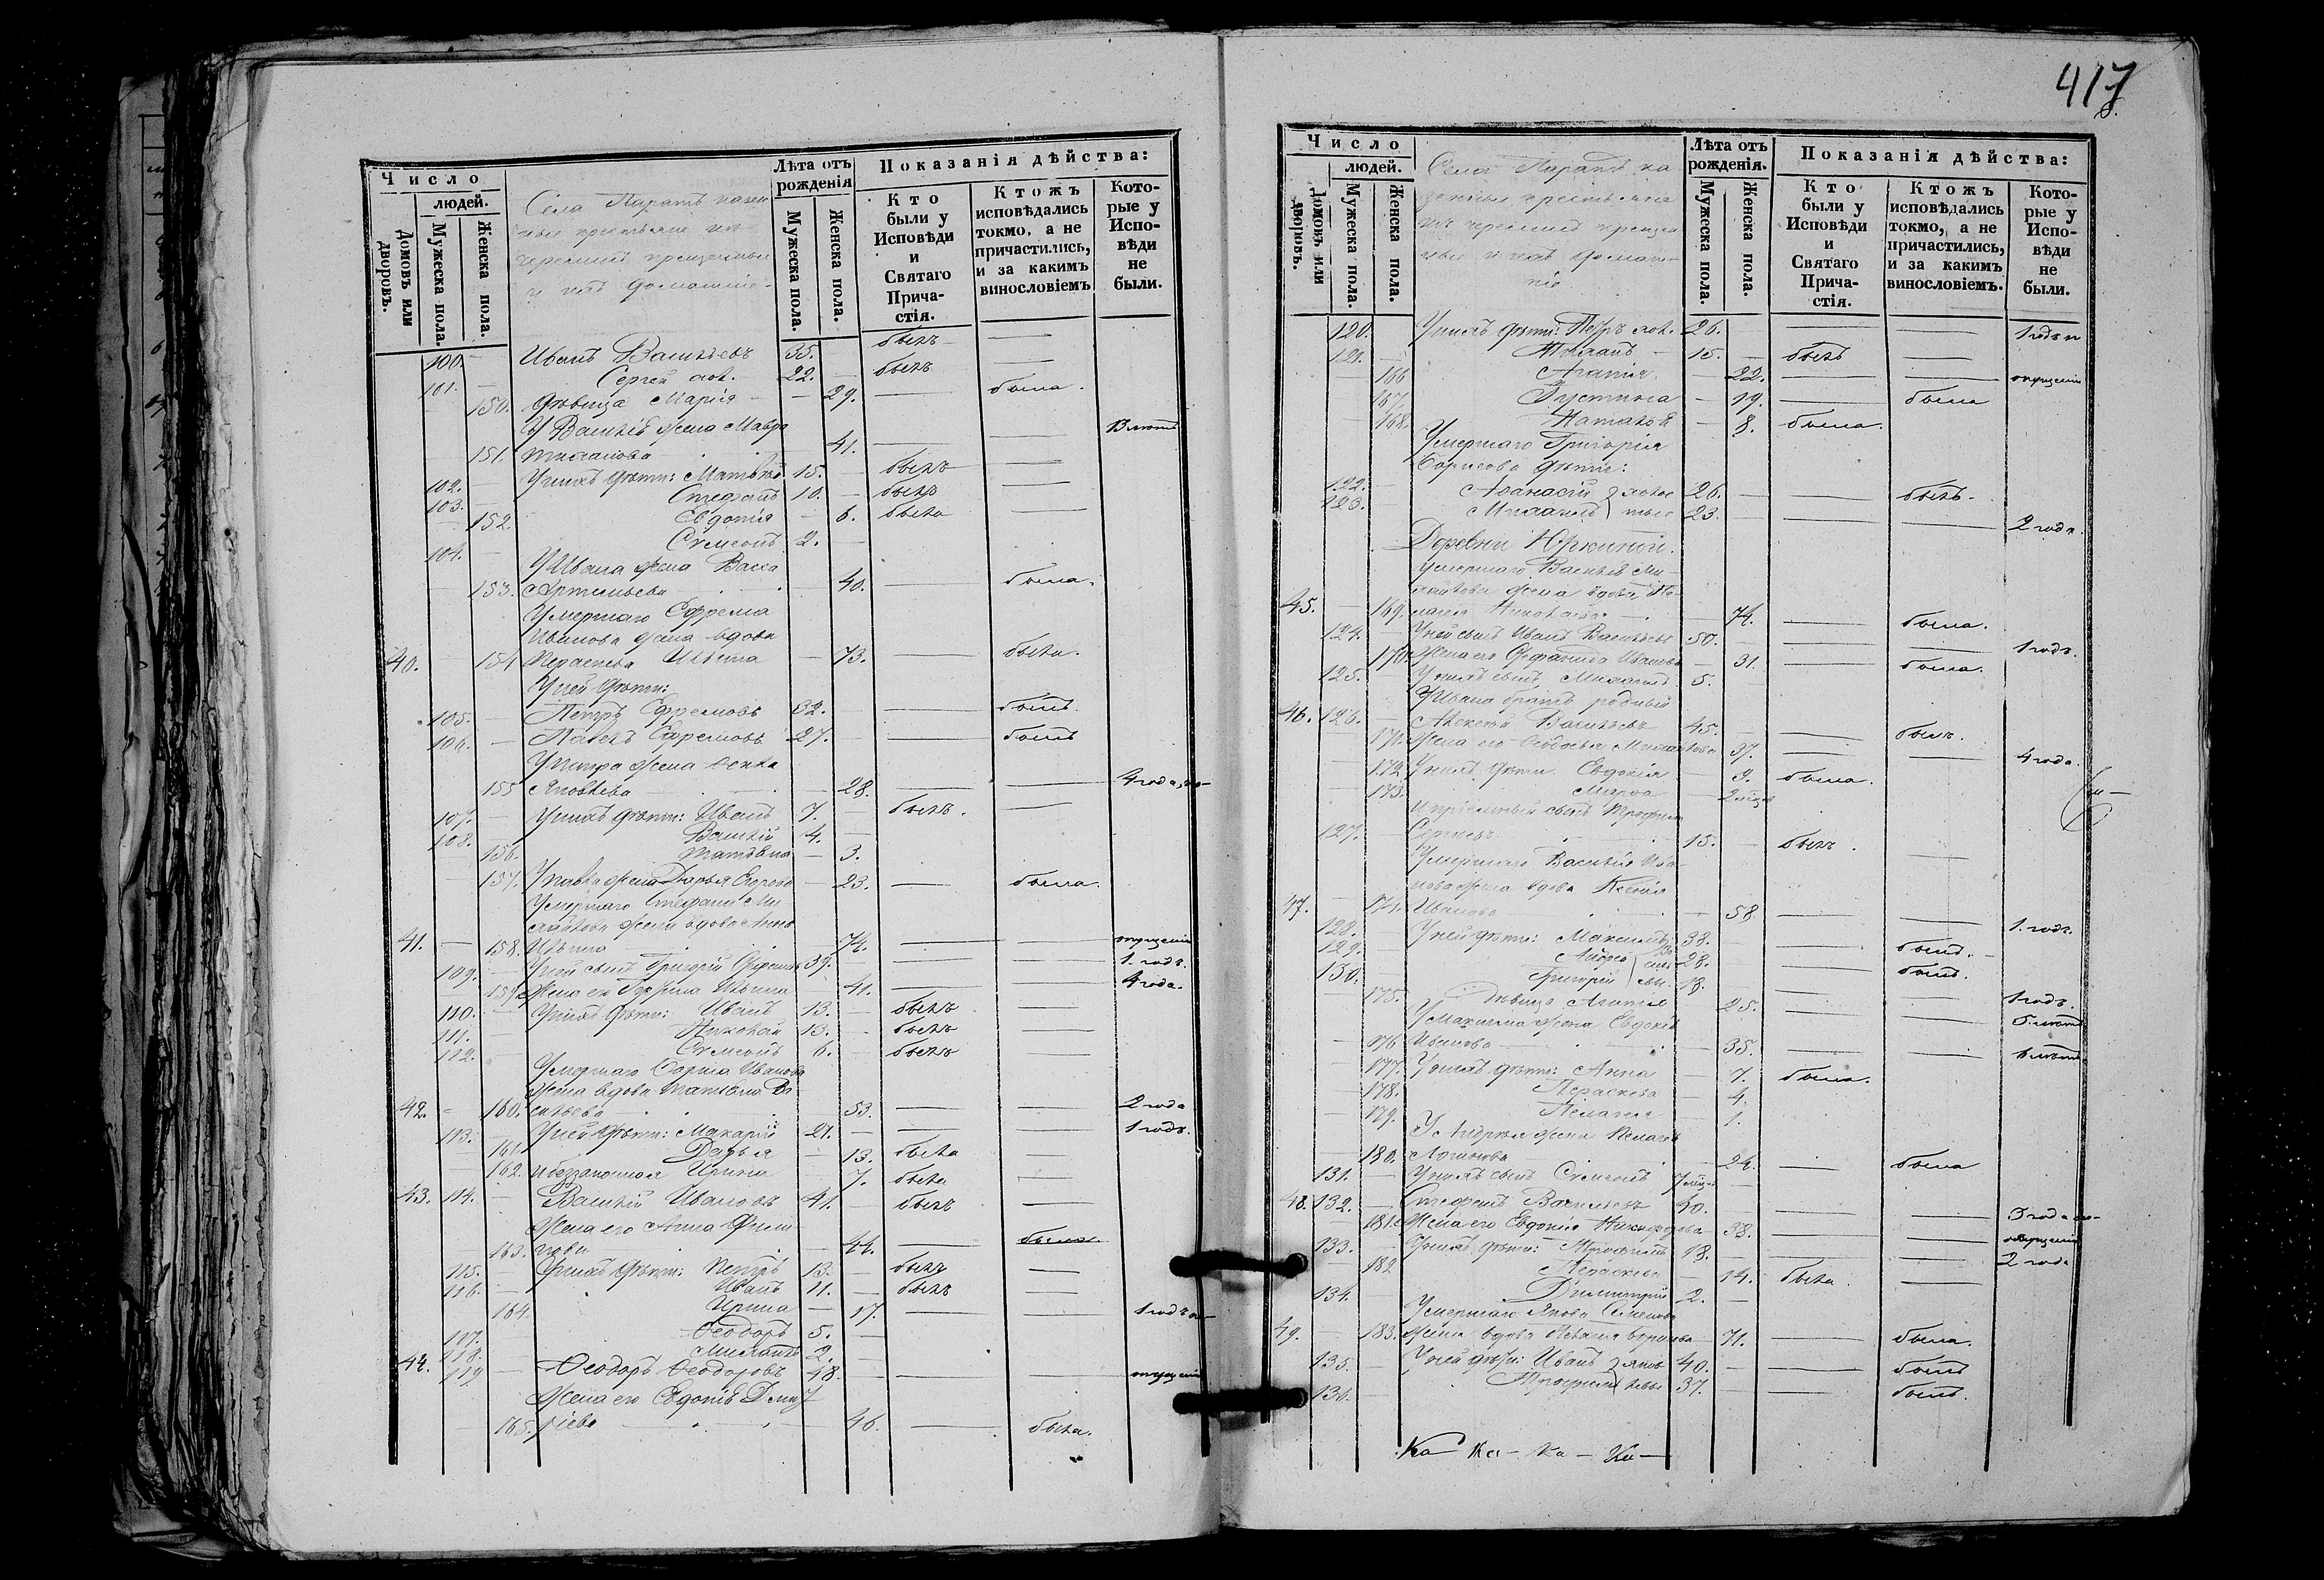 417
Число
людей.
Домовъ или дворовъ.
Мужеска пола.
Женска пола.
Села Паратъ казен
ные крестьяне из
черемисъ крещеные
и ихъ домашніе.
Лѣта отъ рожденія
Мужеска пола.
Женска пола.
Показанія дѣйства:
Кто были у Исповѣди и Святаго Причастія.
Ктожъ исповѣдались токмо, а не причастились, и за какимъ винословіемъ
Которые у Исповѣди не были.
100. Иванъ Васильевъ 35. былъ
101. Сергей 22. былъ
150. Дѣвица Марія 29. была.
У Василія жена Мавра
151. 41.
102. У нихъ дѣти: Матвѣй 15. былъ
103. Стефанъ 10. былъ
152. Евдокія 6. была
104. Сѵмеонъ 2.
У Ивана жена Васса
153. Артемьева 40. была.
Умершаго Ефрема
Иванова жена вдова
40. 154 Параскева Ильина 73. была.
У ней дѣти:
105. Петръ Ефремовъ 32. былъ
106. Павелъ Ефремовъ 27. былъ
У Петра жена
155 Яковлева 28. 4 года
107. У нихъ дѣти: Иванъ 7. былъ.
108. Василій 4.
156. Татьяна 3.
157. У Павла жена Дарья 23. была.
Умершаго Стефана Ми
хайлова жена вдова Анна
41. 158. Ильина 74. опущеніе
109. У ней сынъ Григорій 39. 1 годъ.
159 Жена его Ильина 41. 4 года.
110. У нихъ дѣти: Иванъ 13. былъ
111. Николай 13. былъ
112. Сѵмеонъ 6. былъ
Умершаго Бориса Иванова
жена вдова Татьяна Ва
42. 160. сильева 53. 2 года
113. У ней дѣти: Макарій 21. 1 годъ.
161 Дарья 13. была
162. незаконная Ирина 7. была
43. 114. Василій Ивановъ 41. былъ
Жена его Анна Филип
163. пова 44. была.
115. У нихъ дѣти: Петръ 13. былъ
116. Иванъ 11. былъ
164. Ирина 17. 1 годъ
117. Ѳеодоръ 5.
118. Михаилъ 2.
44. 119 Ѳеодоръ Ѳеодоровъ 48. опущеніе
Жена его Евдокія Дмит
165. ріева 46. была.
Число
людей.
Домовъ или дворовъ.
Мужеска пола.
Женска пола.
Села Паратъ ка
зенные крестьяне
изъ черемисъ крещен
ные и ихъ домаш-
ніе
Лѣта отъ рожденія.
Мужеска пола.
Женска пола.
Показанія дѣйства:
Кто были у Исповѣди и Святаго Причастія.
Ктожъ исповѣдались токмо, а не причастились, и за какимъ винословіемъ.
Которые у Исповѣди не были.
120. У нихъ дѣти: Петръ 26. 1 годъ
121. 15. былъ
166 Агапія 22. опущеніе
167. Устинья 19. была
168. Наталья 8. была.
Умершаго Григорія
Борисова дѣти:
122. Аѳанасій 26. былъ.
123. Михаилъ 23. 2 года.
Деревни Юркиной.
Умершаго Василія Ми-
хайлова жена вдова Пе-
45. 169. лагея 74. была.
124. У ней сынъ Иванъ Васильевъ 50. 1 годъ.
170. Жена его Иванова 31. была.
125. У нихъ сынъ Михаилъ 5.
У Ивана братъ родный
46. 126. Алексѣй Васильевъ 45. былъ.
171. Жена его Ѳеодосья Михайлова 37. 4 года.
172 У нихъ дѣти Евдокія 9. была.
173. Марѳа 2 мѣсяц
И пріемный сынъ Трофимъ
127. Сергѣевъ 15. былъ.
Умершаго Василія Ива-
нова жена вдова Ксенія
47. 174. Иванова 58. 1 годъ.
128. У ней дѣти: Максимъ 38.
129. Андрей 28. былъ.
130. Григорій 18. былъ.
175. Дѣвица Агапія 25. 1 годъ.
У Максима жена Евдокія
176 Иванова 35.
177. У нихъ дѣти: Анна 7. была.
178. Параскева 4.
179. Пелагея 1.
У Андрея жена Пелагея
180. 24. была
131. У нихъ сынъ Сѵмеонъ 7 мѣс.
48. 132. Стефанъ Васильевъ 40. 3 года
181. Жена его Евдокія Никифорова 38. опущеніе
133. У нихъ дѣти: 18. 2 года
182 Параскева 14. была.
134. Димитрій 2.
Умершаго Якова Семенова
49. 183. жена вдова 71. была.
135. У ней дѣти: Иванъ 40. былъ
136. Трофимъ 37. былъ.
Ка Ка – Ка – Ка –